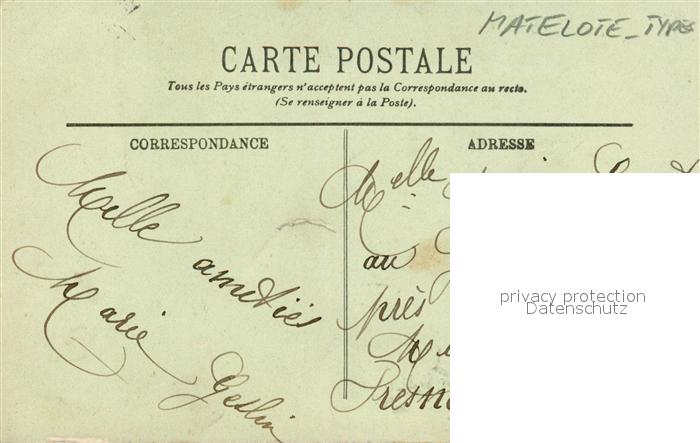 MATELOTE_TYPES
CARTE POSTALE
Tous les Pays étrangers n'acceptent pas la Correspondance au recto.
(Se renseigner à la Poste).
CORRESPONDANCE
ADRESSE
Mille
amitiés
Marie
Geslin
Melle
au
près
privacy protection
Datenschutz